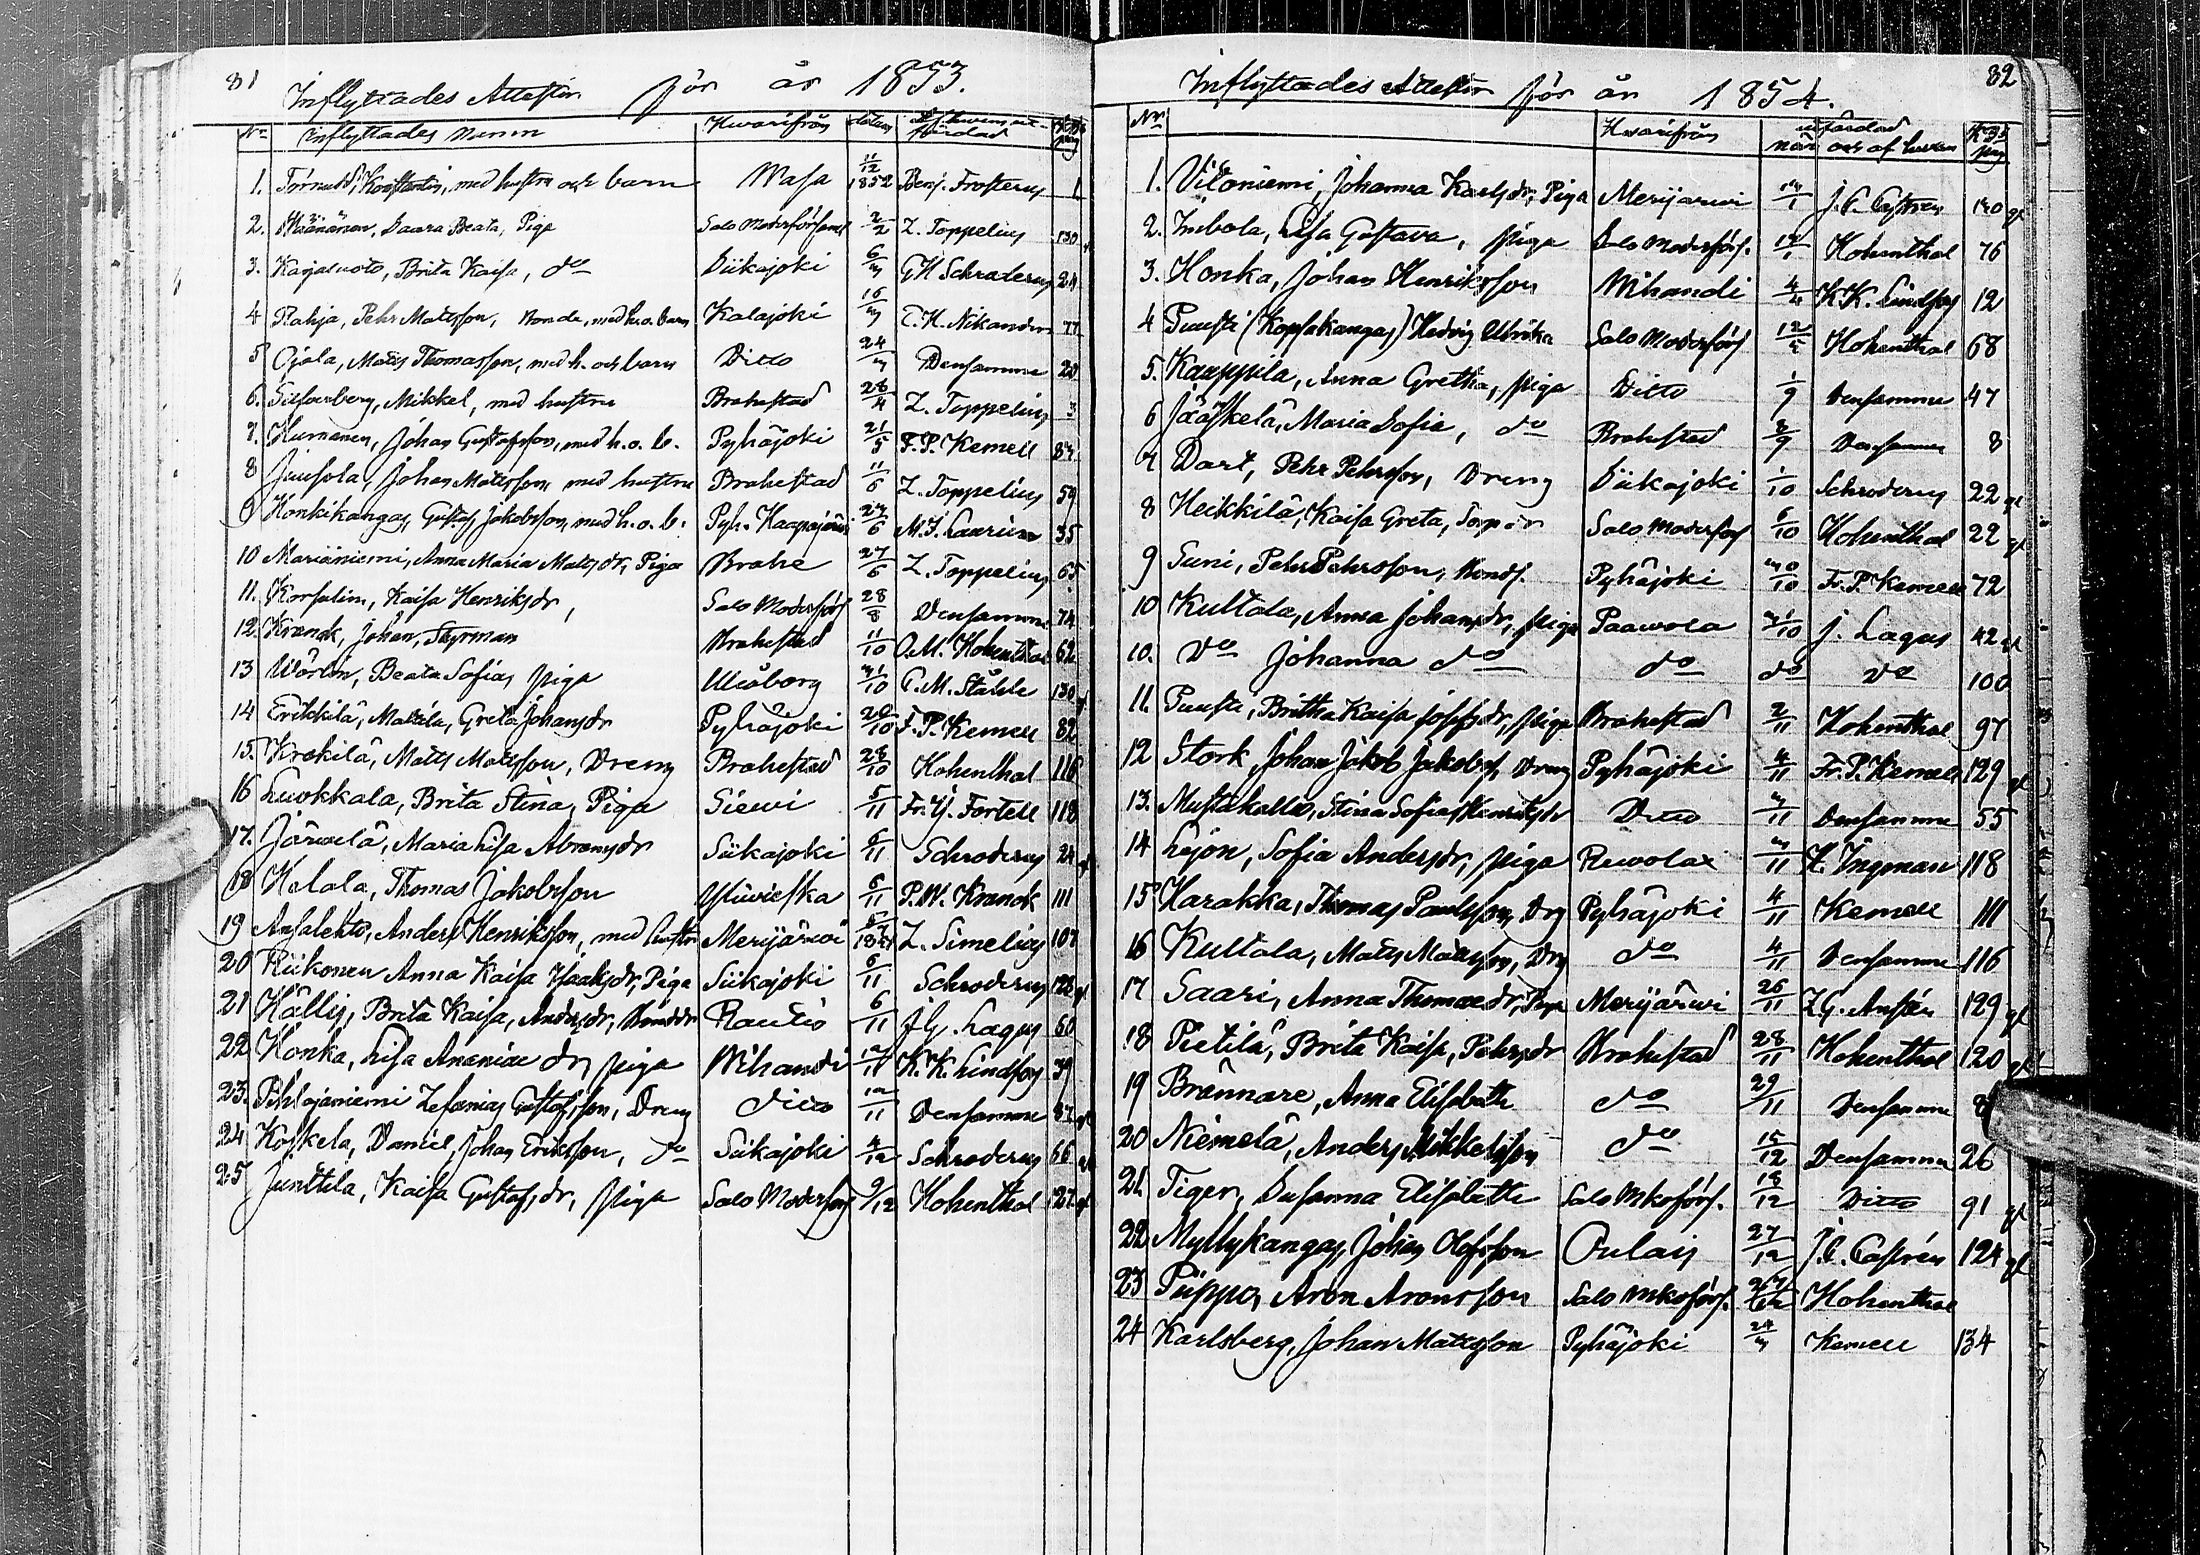 81 Inflyttades Attester för år 1853.
No Inflyttades Namn Hwarifrån datum Af hwem utfärdad
1. Törnudd, Konstantin, med hustru och barn Wasa 11/12 1852 Benj. Frosterus 1
2. Saara Beata, Piga Salo Moderförsaml 2/2 Z. Toppelius 130
3. Karjaluoto, Brita Kaisa, do Siikajoki 6/3 Schroderus 24
4 Rahja, Pehr Matsson, Bonde, med h. o. barn Kalajoki 16/3 Nikander 77
5 Ojala, Matts Thomasson, med h. och barn Ditto 24/3 Densamme 20
6. Silfverberg, Mikkel, med hustru Brahestad 28/4 Z. Toppelius 3
7. Humanen, Johan Gustafsson, med h. o. b. Pyhäjoki 21/5 F. P. Kemell 87
8 Juusola, Johan Matsson med hustru Brahestad 11/6 Z. Toppelius 59
9 Honkikangas, Gustaf Jakobsson, med h. o. b. Pyh. Haapajärwi 27/6 M. I. Laurin 35
10 Mariäniemi, Anna Maria Matsdr, Piga Brahe 27/6 Z. Toppelius 65
11. Korsulin, Kaisa Henriksdr, Salo Moderförs 28/8 Densamme 74
12. Kranck, Johan, Styrman Brahestad 11/10 O. M. Hohenthal 62
13 Beata Sofia, piga Uleåborg 31/10 Ståhle 130
14 Erikkilä, Greta Johansdr Pyhäjoki 20/10 F. P. Kemell 82
15. Krekilä, Matts Matsson, Dreng Brahestad 28/10 Hohenthal 116
16 Luokkala, Brita Stina, Piga Siewi 5/11 Fr. Hj. Fortell 118
17. Järwelä, Maria Lisa Abramsdr Siikajoki 6/11 Schroderus 24
18 Kalala, Thomas Jakobsson Ylivieska 6/11 P. W. Kranck 111
19 Ansalehto, Anders Henriksson, med hustru Merijärwi Z. Simelius 107
20 Riikonen Anna Kaisa Isaaksdr, Piga Siikajoki 6/11 Schroderus 122
21 Källis, Brita Kaisa, Andersdr, Bondedr Rautio 6/11 J. Hj. Lagus 60
22 Honka, Lisa Ananiae dr, piga Wihandi 12/11 K. K. Lindfors 39
23. Pihlajaniemi Zefanias Gustafsson, Dreng ditto 12/11 Densamme 87
24 Koskela, Daniel, Johan Eriksson, do Siikajoki 4/12 Schroderus 66
25 Junttila, Kaisa Gustafsdr, piga Salo Moderförs 9/12 Hohenthal 127
Inflyttades Attester för år 1854. 82
No Hwarifrån när utfärdad och af hwem
1. Vitoniemi, Johanna Karlsdr, Piga Merijärwi 14/1 J. C. Castrén 140
2. Imbola, Lisa Gustava, piga Salo Moderförs. Hohenthal 76
3. Honka, Johan Henriksson Wihandi 4/4 K. K. Lindfors 12
4 Puusti (Kopsakangas) Hedvig Ulrika Salo Moderförs 12/5 Hohenthal 68
5. Kaappila, Anna Gretha, piga Ditto 1/9 Densamme 47
6 Jääskelä, Maria Sofia, do Brahestad 8/9 Densamme 8
7 Dart, Pehr Pehrsson, Dreng Siikajoki 1/10 Schroderus 22
8 Heikkilä, Kaisa Greta, Salo Moderförs 6/10 Hohenthal 22
9 Suni, Pehr Pehrsson, Bonds. Pyhäjoki 30/10 Fr. P. Kemell 72
10 Kultala, Anna Johansdr, piga Paawola 31/10 J. Lagus 42
10. Do Johanna do do do Do 100
11. Puusti, Britha Kaisa Josefsdr, piga Brahestad 2/11 Hohenthal 97
12 Stork, Johan Jakob Jakobss, Dreng Pyhäjoki 4/11 Fr. P. Kemell 129
13. Mustakallio, Stina Sofia Henriksdr Ditto 3/11 Densamme 55
14 Lejon, Sofia Andersdr, piga Rewolax 3/11 K. Ingman 118
15 Harakka, Thomas Paulsson, Drg Pyhäjoki 4/11 Kemell 111
16 Kultala, Matts Matsson, Drg do 4/11 Densamme 116
17 Saari, Anna Thomae dr, Piga Merijärwi 26/11 129
18 Pietilä, Brita Kaisa, Pehrsdr Brahestad 28/11 Hohenthal 120
19 Brännare, Anna Elisabeth do 29/11 Densamme
20 Niemelä, Anders Mikkelsson do 15/12 Densamme 26
21. Tiger, Susanna Elisabeth Salo Mkoförs. 18/12 Ditto 91
22 Myllykangas Johan Olofsson Oulais 27/12 J. C. Castrén 124
23 Piippo, Aron Aronsson Salo Mkoförs. Hohenthal
24 Karlsberg, Johan Mattsson Pyhäjoki 24/3 Kemell 134